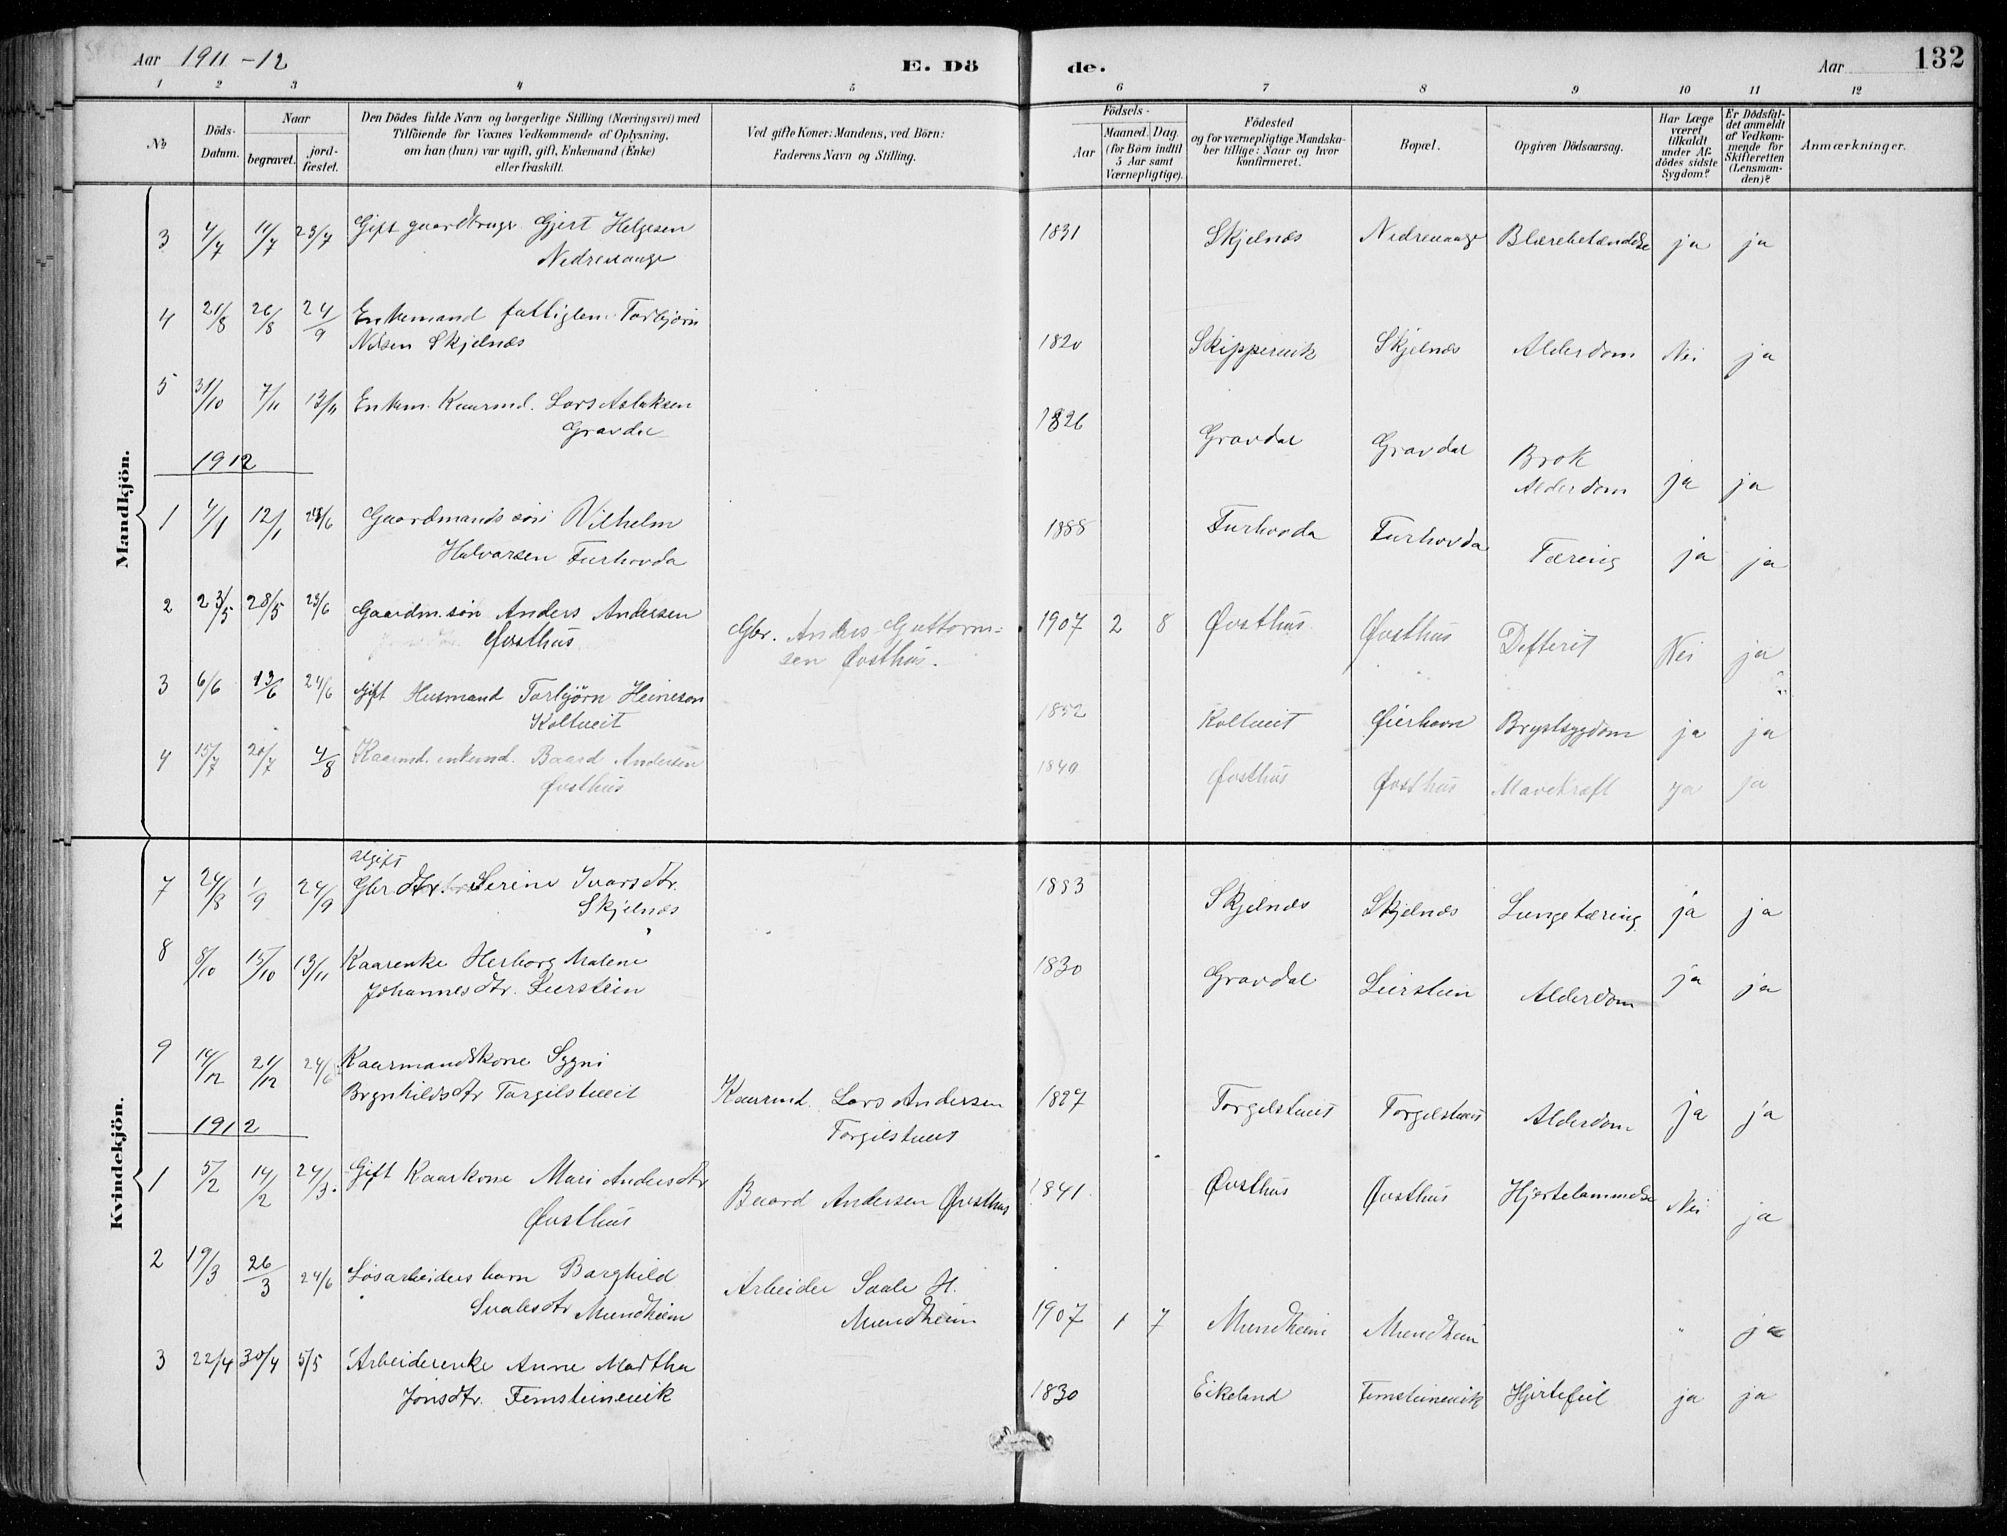 Aar 1911 - 12
E. Dö
de.
Aar
132
1 2 3 4 5 6 7 8 9 10 11 12
No
Döds-
Datum.
Naar
begravet.
jord-
fæstet.
Den Dödes fulde Navn og borgerlige Stilling (Næringsvei) med
Tilföiende for Voxnes Vedkommende af Oplysning,
om han (hun) var ugift, gift, Enkemand (Enke)
eller fraskilt.
Ved gifte Koner: Mandens, ved Börn:
Faderens Navn og Stilling.
Födsels-
Aar
Maaned. Dag.
(for Börn indtil
5 Aar samt
Værnepligtige).
Födested
og for værnepligtige Mandska-
ber tillige: Naar og hvor
konfirmeret.
Bopæl.
Opgiven Dödsaarsag.
Har Læge
været
tilkaldt
under Af-
dödes sidste
Sygdom?
Er Dödsfal-
det anmeldt
af Vedkom-
mende for
Skifteretten
(Lensman-
den)?
Anmærkninger.
Mandkjön.
3 4/7 11/7 23/7 Gift gaardbruger Gjert Helgesen 1831 Skjelnæs Nedrevaage Blærebetændelse ja ja
Nedrevaage
4 21/8 26/8 24/9 Enkemand fattiglem Torbjørn
Nilsen Skjelnæs 1820 Skippervik Skjelnæs Alderdom Nei ja
5 31/10 7/11 13/11 Enkem. Kaarmd. Lars Aslaksen 1826 Gravdal Gravdal Brok
Gravdal Alderdom ja ja
1912
1 4/1 12/1 23/6 Gaardmands søn Vilhelm 1888 Furhovda Furhovda Tæring ja ja
Halvarsen Furhovda
2 23/5 28/5 23/6 Gaardm. søn Anders Andersen Gbr. Anders Guttorm- 1907 2 8 Øvsthus Øvsthus Defterit Nei ja
Øvsthus sen Øvsthus.
3 6/6 13/6 24/6 Gift Husmand Torbjørn Heineson 1852 Koltveit Øierhavn Brystsygdom ja ja
Koltveit
4 15/7 20/7 4/8 Kaarmd. enkemd. Baard Andersen 1849 Øvsthus Øvsthus Mavekræft ja ja
Øvsthus
Kvindekjön.
ugift
7 24/8 1/9 24/9 Gbr dtr. Serine Ivarsdtr. 1883 Skjelnæs Skjelnæs Lungetæring ja ja
Skjelnæs
8 8/10 15/10 13/11 Kaarenke Herborg Malene 1830 Gravdal Leirstein Alderdom ja ja
Johannesdtr. Leirstein
9 14/12 21/12 24/6 Kaarmandskone Sygni
Brynhildsdtr Torgilstveit Kaarmd. Lars Andersen 1827 Torgilstveit Torgilstveit Alderdom ja ja
1912 Torgilstveit
1 5/2 14/2 24/3. Gift Kaarkone Mari Andersdtr Baard Andersen Øvsthus 1841. Øvsthus Øvsthus Hjertelammelse Nei ja
Øvsthus
2 19/3 26/3 24/6 Løsarbeiders barn Borghild Arbeider Svale H.
Svalesdtr Mundheim Mundheim 1907 1 7 Mundheim Mundheim " ja
3 22/4 30/4 5/5 Arbeiderenke Anne Martha
Jonsdtr. Femsteinevik 1830 Eikeland Femsteinevik Hjertefeil ja ja